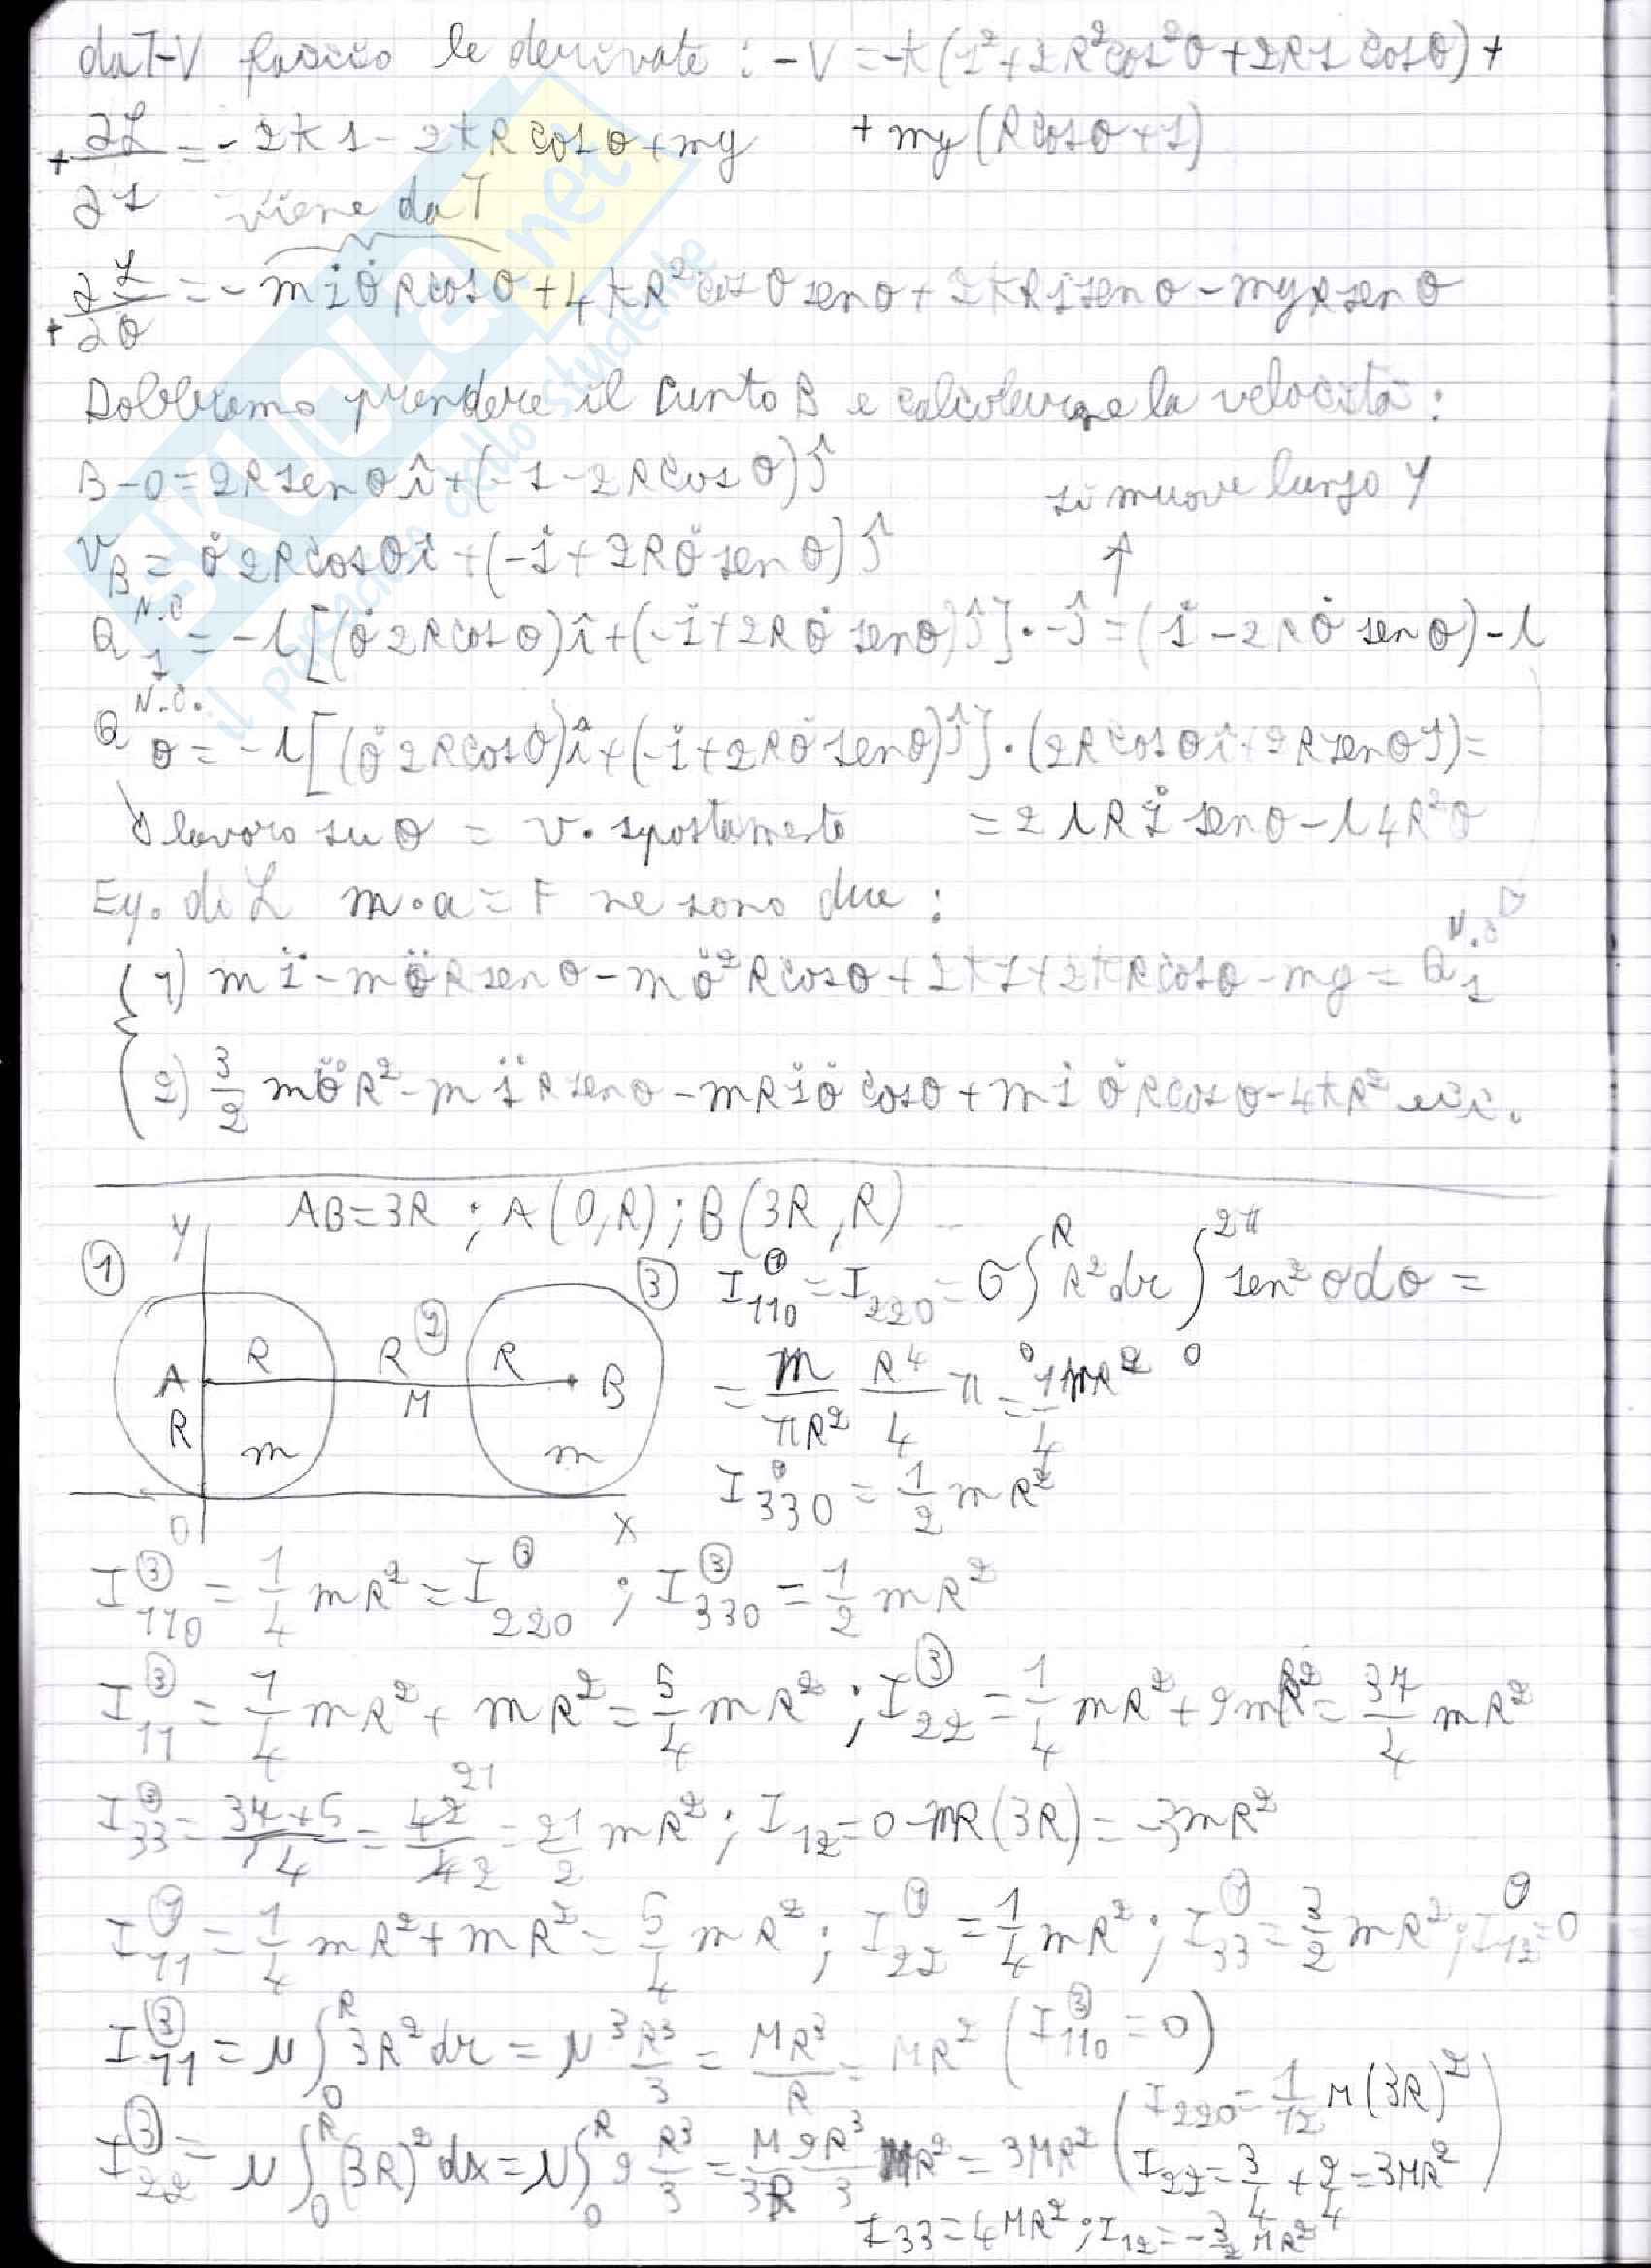 da T-V faccio le derivate : -V = -k(s²+2R²cos²θ+2Rs cosθ)+
+∂L/∂s = -2ks-2kRcosθ+mg +mg(Rcosθ+s)
viene da T
+∂L/∂θ = -mṡθ̇Rcosθ+4kR²cosθsenθ+2kRssenθ-mgRsenθ
Dobbiamo prendere il punto B e calcolarne la velocità :
B-O=2Rsenθî+(-s-2Rcosθ)ĵ si muove lungo y
v_B = θ̇2Rcosθî+(-ṡ+2Rθ̇senθ)ĵ ↑
Q_s^N.C = -λ[(θ̇2Rcosθ)î+(-ṡ+2Rθ̇senθ)ĵ]·-ĵ=(ṡ-2Rθ̇senθ)-λ
Q_θ^N.C. = -λ[(θ̇2Rcosθ)î+(-ṡ+2Rθ̇senθ)ĵ]·(2Rcosθî+2Rsenθĵ)=
lavoro su θ = v·spostamento =2λRṡsenθ-λ4R²θ̇
Eq. di L m·a=F ne sono due :
1) ms̈-mθ̈Rsenθ-mθ̇²Rcosθ+2ks+2kRcosθ-mg=Q_s^N.C
2) 3/2 mθ̈R²-ms̈Rsenθ-mRṡθ̇cosθ+mṡθ̇Rcosθ-4kR² ecc.
AB=3R ; A(0,R) ; B(3R,R)
y
① ② ③
A R R R B
R m M m
O x
I₁₁₀^① = I₂₂₀ = σ∫₀^R R²dr ∫₀^2π sen²θdθ =
= m/πR² R⁴/4 π = 1/4 mR²
I₃₃₀ = 1/2 mR²
I₁₁₀^③ = 1/4 mR² = I₂₂₀^③ ; I₃₃₀^③ = 1/2 mR²
I₁₁^③ = 1/4 mR² + mR² = 5/4 mR² ; I₂₂^③ = 1/4 mR²+9mR² = 37/4 mR²
I₃₃^③ = 37+5/4 = 42/4 = 21/2 mR² ; I₁₂=0-mR(3R)=-3mR²
I₁₁^① = 1/4 mR²+mR² = 5/4 mR² ; I₂₂^① = 1/4 mR² ; I₃₃^① = 3/2 mR² ; I₁₂^①=0
I₁₁^③ = μ∫₀^R 3R²dr = μ 3 R³/3 = MR³/R = MR² (I₁₁₀^③ = 0)
I₂₂^③ = μ∫₀^R (3R)²dx = μ∫₀^R 9 R³/3 = M/3R 9R³/3 MR² = 3MR² (I₂₂₀ = 1/12 M(3R)²
I₂₂ = 3/4 + 9/4 = 3MR²)
I₃₃=4MR² ; I₁₂=-3/2 MR²
SKUOLA.net
il paradiso dello studente